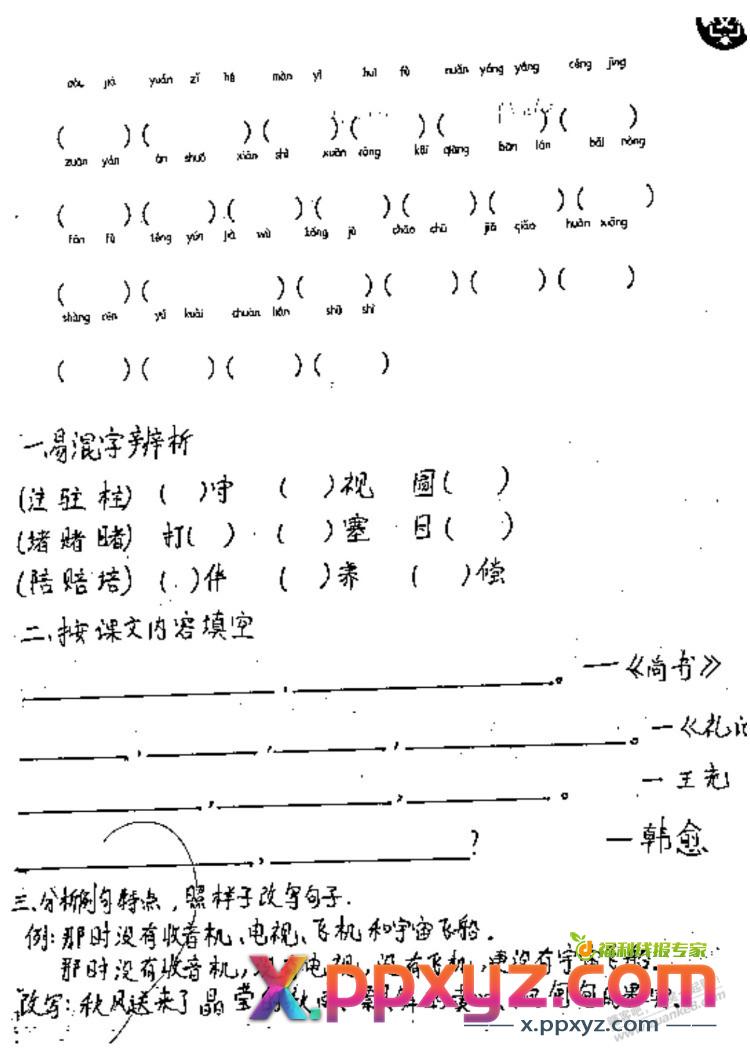 jià yuán zǐ hé màn yì huī fù nuǎn yáng yáng céng jīng
( ) ( ) ( ) ( ) ( ) ( )
zuān yán ān shuō xiǎn shì xuān róng kāi qiāng bān lán bǎi nòng
( ) ( ) ( ) ( ) ( ) ( ) ( )
fǎn fù téng yún jià wù kǒng jù chāo chū jiā qiáo huàn xiǎng
( ) ( ) ( ) ( ) ( ) ( )
shāng rén yú kuài chuàn lián shū shì
( ) ( ) ( ) ( )
一、易混字辨析
(注 驻 柱) ( )守 ( )视 圆( )
(堵 赌 睹) 打( ) ( )塞 目( )
(陪 赔 培) ( )伴 ( )养 ( )偿
二、按课文内容填空
, 。 —《尚书》
, , , 。 —《礼记
, , 。 — 王充
, ? — 韩愈
三、分析例句特点，照样子改写句子.
例：那时没有收音机、电视、飞机和宇宙飞船。
那时没有收音机, 电视, 没有飞机,更没有宇
福利线报专家
改写：秋风送来了晶莹的秋
X.ppxyz.com
x.ppxyz.com